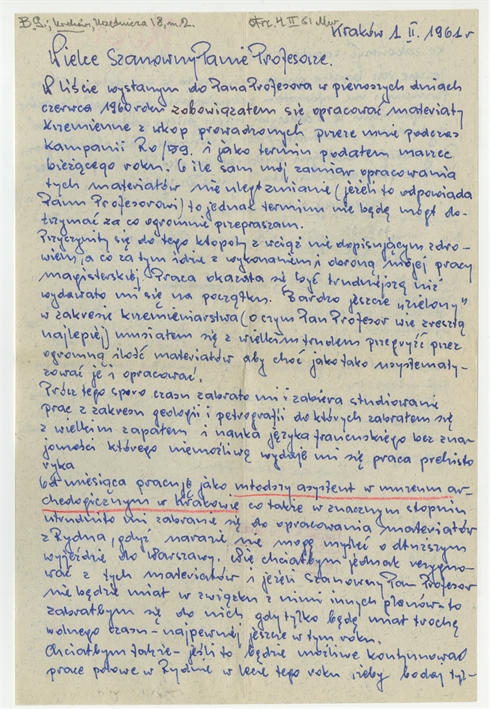 B.G., Kraków, Urzędnicza 18, m. 2.
Otrz. 4 II 61
Kraków 1 II. 1961 r
Wielce Szanowny Panie Profesorze.
W liście wysłanym do Pana Profesora w pierwszych dniach
czerwca 1960 roku zobowiązałem się opracować materiały
krzemienne z wkop prowadzonych przeze mnie podczas
kampanii Ro/59. i jako termin podałem marzec
bieżącego roku. O ile sam mój zamiar opracowania
tych materiałów nie uległ zmianie (jeżeli to odpowiada
Panu Profesorowi) to jednak terminu nie będę mógł do-
trzymać za co ogromnie przepraszam.
Przyczyniły się do tego kłopoty z wciąż nie dopisującym zdro-
wiem, a co za tym idzie z wykonaniem i obroną mojej pracy
magisterskiej. Praca okazała się być trudniejszą niż
wydawało mi się na początku. Bardzo jeszcze „zielony"
w zakresie krzemieniarstwa (o czym Pan Profesor wie zresztą
najlepiej) musiałem się z wielkim trudem przegryźć przez
ogromną ilość materiałów aby choć jako tako usystematy-
zować je i opracować.
Prócz tego sporo czasu zabrało mi i zabiera studiowanie
prac z zakresu geologii i petrografii do których zabrałem się
z wielkim zapałem i nauka języka francuskiego bez zna-
jomości którego niemożliwą wydaje mi się praca prehisto
ryka
Od miesiąca pracuję jako młodszy asystent w muzeum ar-
cheologicznym w Krakowie co także w znacznym stopniu
utrudniło mi zabranie się do opracowania materiałów
z Rydna, gdyż narazie nie mogę myśleć o dłuższym
wyjeździe do Warszawy. Nie chciałbym jednak rezygno-
wać z tych materiałów i jeżeli Szanowny Pan Profesor
nie będzie miał w związku z nimi innych planów - to
zabrałbym się do nich, gdy tylko będę miał trochę
wolnego czasu - najpewniej jeszcze w tym roku.
Chciałbym także - jeśli to będzie możliwe kontynuować
prace polowe w Rydnie w lecie tego roku żeby bodaj tyl-